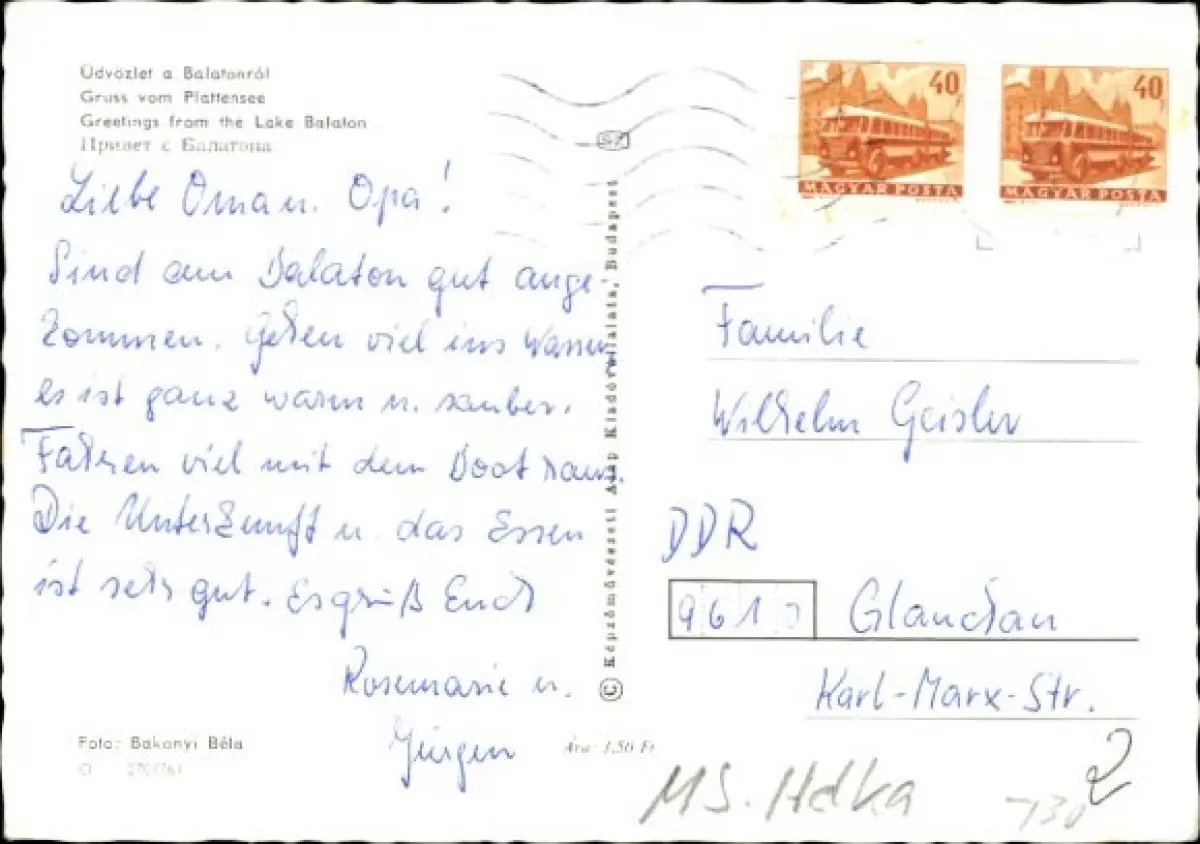 Üdvözlet a Balatonról
Gruss vom Plattensee
Greetings from the Lake Balaton
Привет с Балатона
Liebe Oma u. Opa!
Sind am Balaton gut ange-
kommen. Gehen viel ins Wasser
es ist ganz warm u. sauber.
Fahren viel mit dem Boot raus.
Die Unterkunft u. das Essen
ist sehr gut. Es grüßt Euch
Rosemarie u.
Jürgen
Foto: Bakonyi Béla
Ára: 3,50 Ft
© Képzőművészeti Alap Kiadóvállalata, Budapest
40
MAGYAR POSTA
40
MAGYAR POSTA
Familie
Wilhelm Geisler
DDR
961 Glauchau
Karl-Marx-Str.
2
MS. Hdka